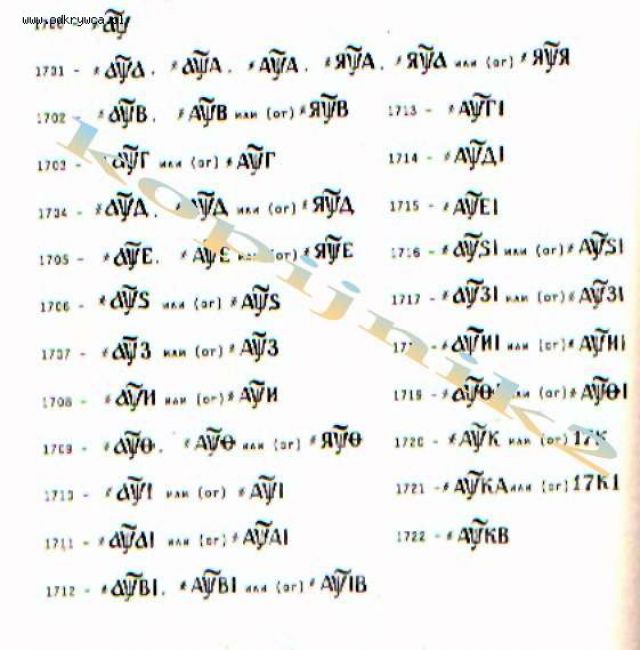 www.odkrywca.pl
1700 - *аѱ҃
1701 - *аѱ҃а. *аѱ҃А. *АѰ҃А. *ЯѰ҃А. *ЯѰ҃а или (or) *ЯѰ҃Я
1702 - *аѰ҃В. *АѰ҃В или (or) *ЯѰ҃В
1703 - *аѰ҃Г или (or) *АѰ҃Г
1704 - *аѰ҃Д. *АѰ҃Д или (or) *ЯѰ҃Д
1705 - *аѰ҃Е. *АѰ҃Е или (or) *ЯѰ҃Е
1706 - *аѰ҃Ѕ или (or) *АѰ҃Ѕ
1707 - *аѰ҃З или (or) *АѰ҃З
1708 - *аѰ҃И или (or) *АѰ҃И
1709 - *аѰ҃Ѳ. *АѰ҃Ѳ или (or) *ЯѰ҃Ѳ
1710 - *аѰ҃І или (or) *АѰ҃І
1711 - *аѰ҃аІ или (or) *АѰ҃АІ
1712 - *аѰ҃ВІ. *АѰ҃ВІ или (or) *АѰ҃ІВ
1713 - *АѰ҃ГІ
1714 - *АѰ҃ДІ
1715 - *АѰ҃ЕІ
1716 - *аѰ҃ЅІ или (or) *АѰ҃ЅІ
1717 - *аѰ҃ЗІ или (or) *АѰ҃ЗІ
*аѰ҃ИІ или (or) *АѰ҃ИІ
1719 - *аѰ҃ѲІ или (or) *АѰ҃ѲІ
1720 - *АѰ҃К или (or) 17К
1721 - *АѰ҃КА или (or) 17К1
1722 - *АѰ҃КВ
kopijnik2